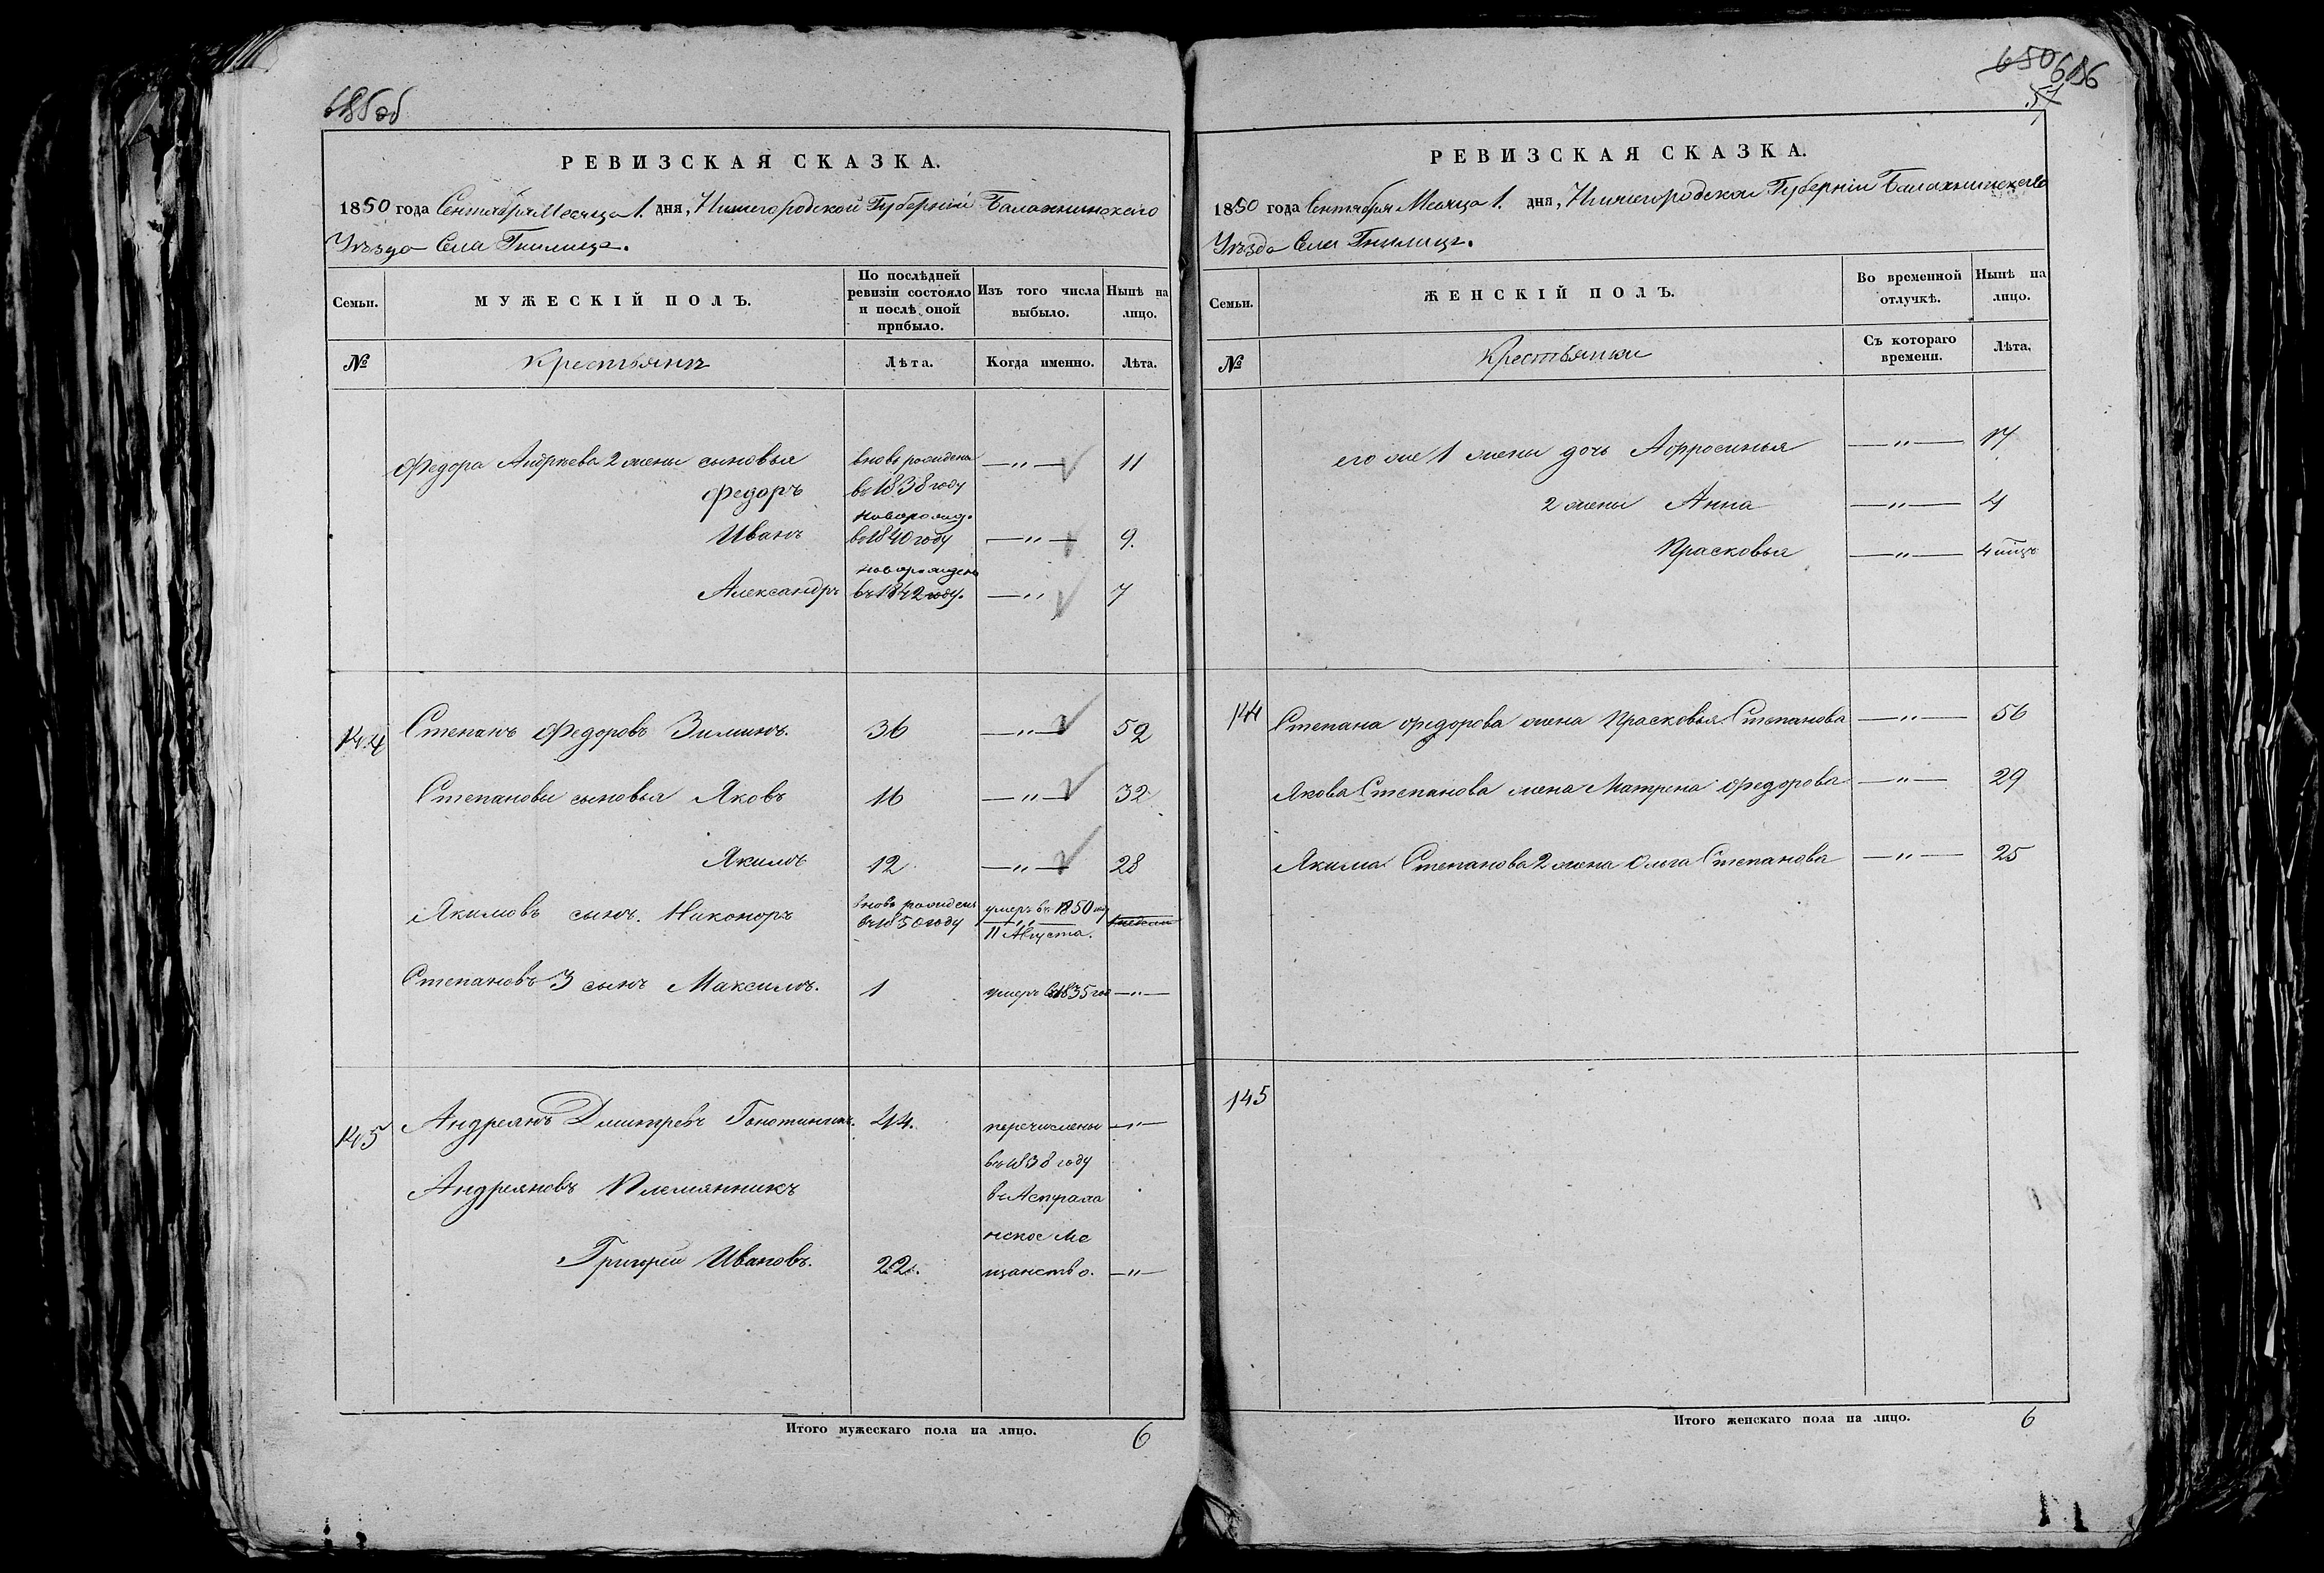 685об
РЕВИЗСКАЯ СКАЗКА.
1850 года Сентября Месяца 1. дня, Нижегородской Губернiи Балахнинскаго
Уѣзда Села Гнилицъ.
Семьи.
МУЖЕСКІЙ ПОЛЪ.
По послѣдней
ревизіи состояло
и послѣ оной
прибыло.
Изъ того числа
выбыло.
Нынѣ на
лицо.
№
Крестьянъ
Лѣта.
Когда именно.
Лѣта.
Федора Андрѣева 2 жены сыновья
вновь рожденъ
—"—
11
Федоръ
въ 1838 году
новорожд.
Иванъ
въ 1840 году
—"—
9.
новорожденъ
Александръ
въ 1842 году.
—"
7
144
Степанъ Федоровъ Зиминъ.
36
—"—
52
Степановы сыновья Яковъ
16
—"—
32
Якимъ
12
—"—
28
Якимовъ сынъ. Никоноръ
вновь рожденъ
въ 1850 году
умеръ въ 1850 году
11 Августа.
Степановъ 3 сынъ Максимъ.
1
умеръ въ 1835 год
—"—
145
Андреянъ Дмитревъ
44.
перечислены
—"—
въ 1838 году
Андреяновъ Племянникъ
въ Астраха
нское Ме
Григорей Ивановъ.
22.
щанство.
—"—
Итого мужескаго пола на лицо.
6
650 686
57
РЕВИЗСКАЯ СКАЗКА.
1850 года Сентября Месяца 1. дня, Нижегородской Губернiи Балахнинскаго
Уѣзда Села Гнилицъ.
Семьи.
ЖЕНСКІЙ ПОЛЪ.
Во временной
отлучкѣ.
Нынѣ на
лицо.
№
Крестьянки
Съ котораго
времени.
Лѣта.
его же 1 жены дочь Афросинья
—"—
17
2 жены Анна
—"—
4
Прасковья
—"—
4 мѣцъ
144
Степана Федорова жена Прасковья Степанова
—"—
56
Якова Степанова жена Матрена Федорова
—"—
29
Якима Степанова 2 жена Ольга Степанова
—"—
25
145
Итого женскаго пола на лицо.
6